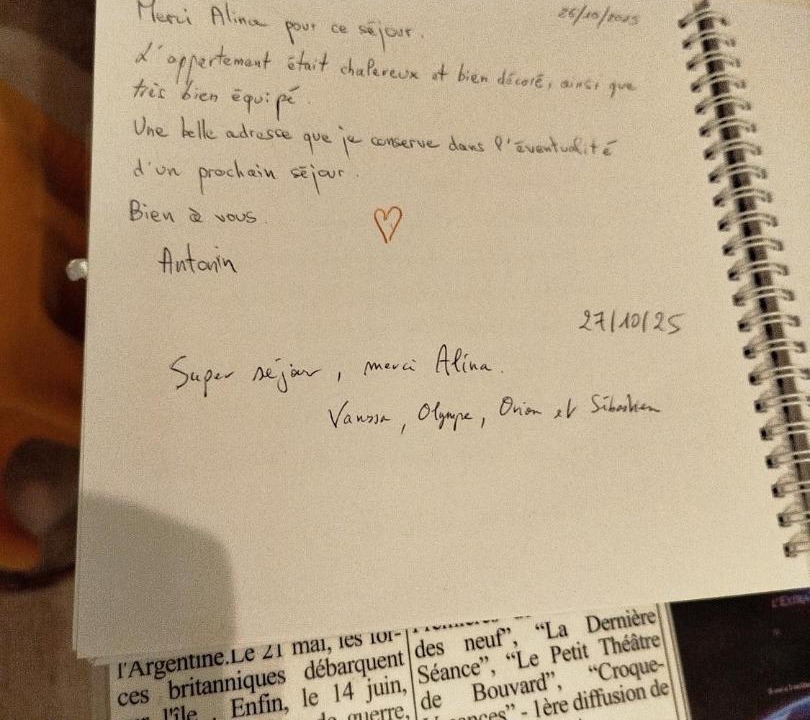 26/10/2025
Merci Alina pour ce séjour.
L'appartement était chaleureux et bien décoré, ainsi que
très bien équipé.
Une belle adresse que je conserve dans l'éventualité
d'un prochain séjour.
Bien à vous.
Antonin
27/10/25
Super séjour, merci Alina.
Vanessa, Olympe, Orion et Sébastien
l'Argentine.Le 21 mai, les for-
ces britanniques débarquent
l'île. Enfin, le 14 juin,
guerre,
des neuf", "La Dernière
Séance", "Le Petit Théâtre
de Bouvard", "Croque-
- 1ère diffusion de